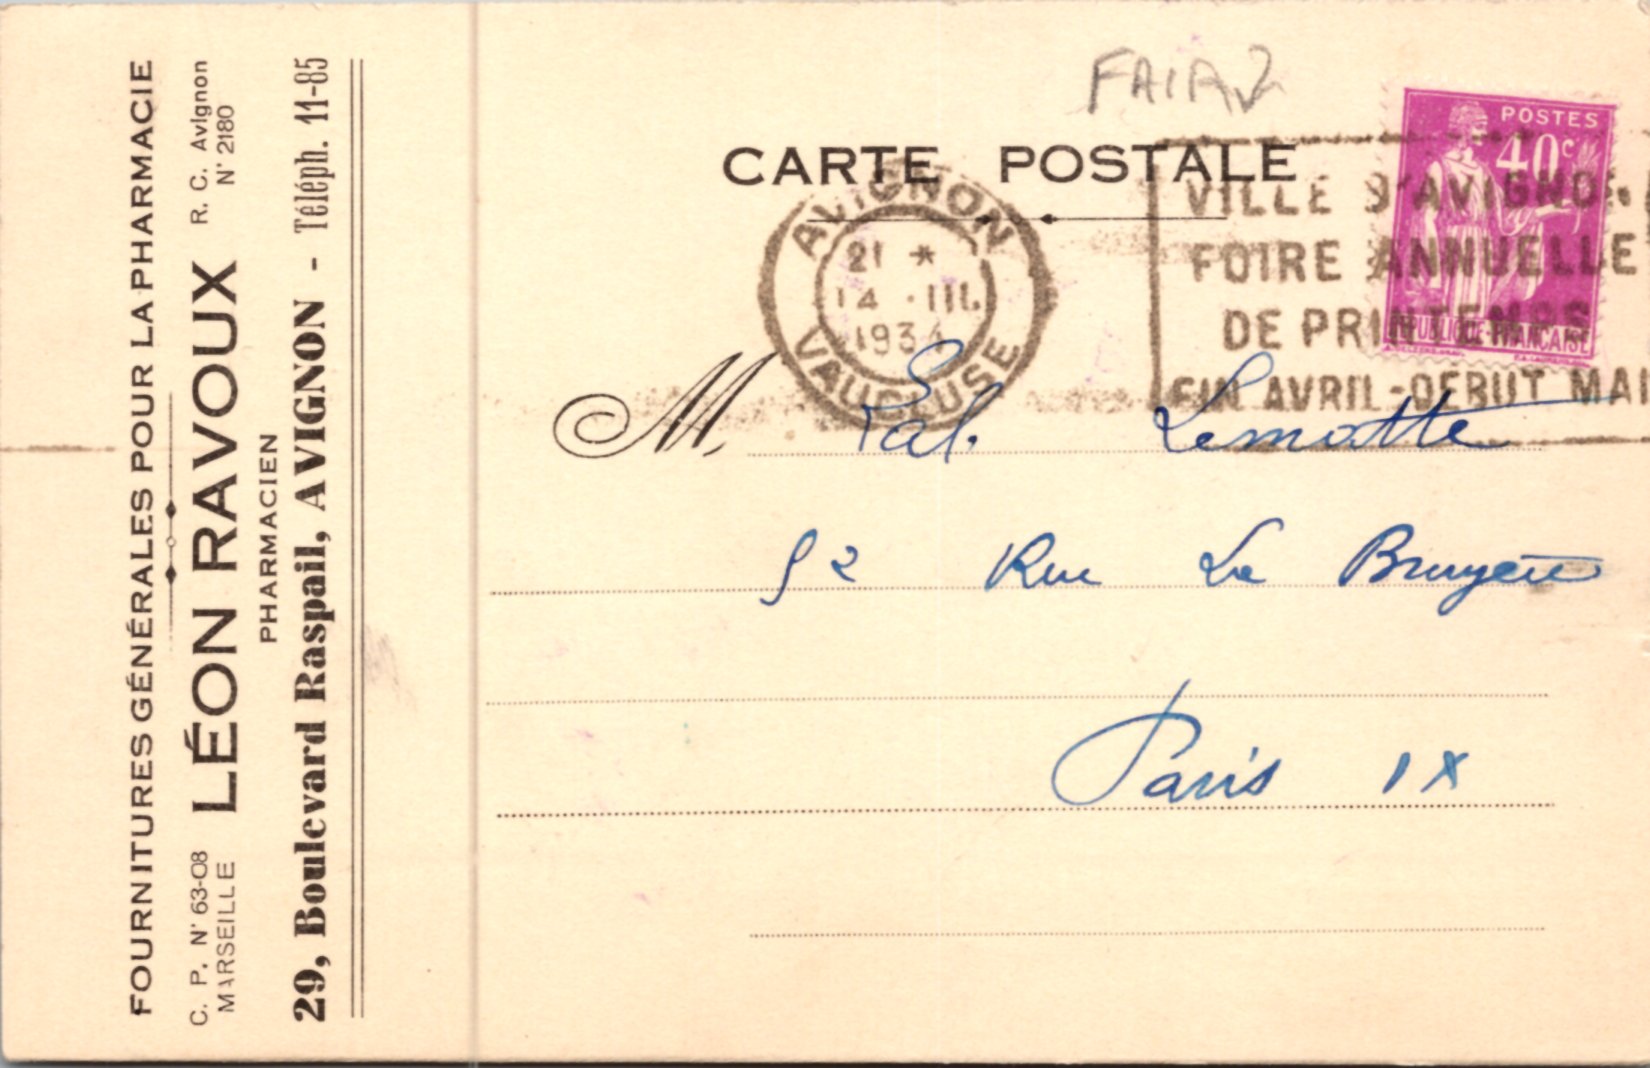 FOURNITURES GÉNÉRALES POUR LA PHARMACIE
C. P. N° 63-08
MARSEILLE
LÉON RAVOUX
R. C. Avignon
N° 2180
PHARMACIEN
29, Boulevard Raspail, AVIGNON - Téléph. 11-85
CARTE POSTALE
POSTES
40c
REPUBLIQUE-FRANÇAISE
AVIGNON
21 *
14 · III.
1934
VAUCLUSE
VILLE D'AVIGNON
FOIRE ANNUELLE
DE PRINTEMPS
FIN AVRIL-DEBUT MAI
M. Lab. Lematte
52 Rue La Bruyère
Paris IX